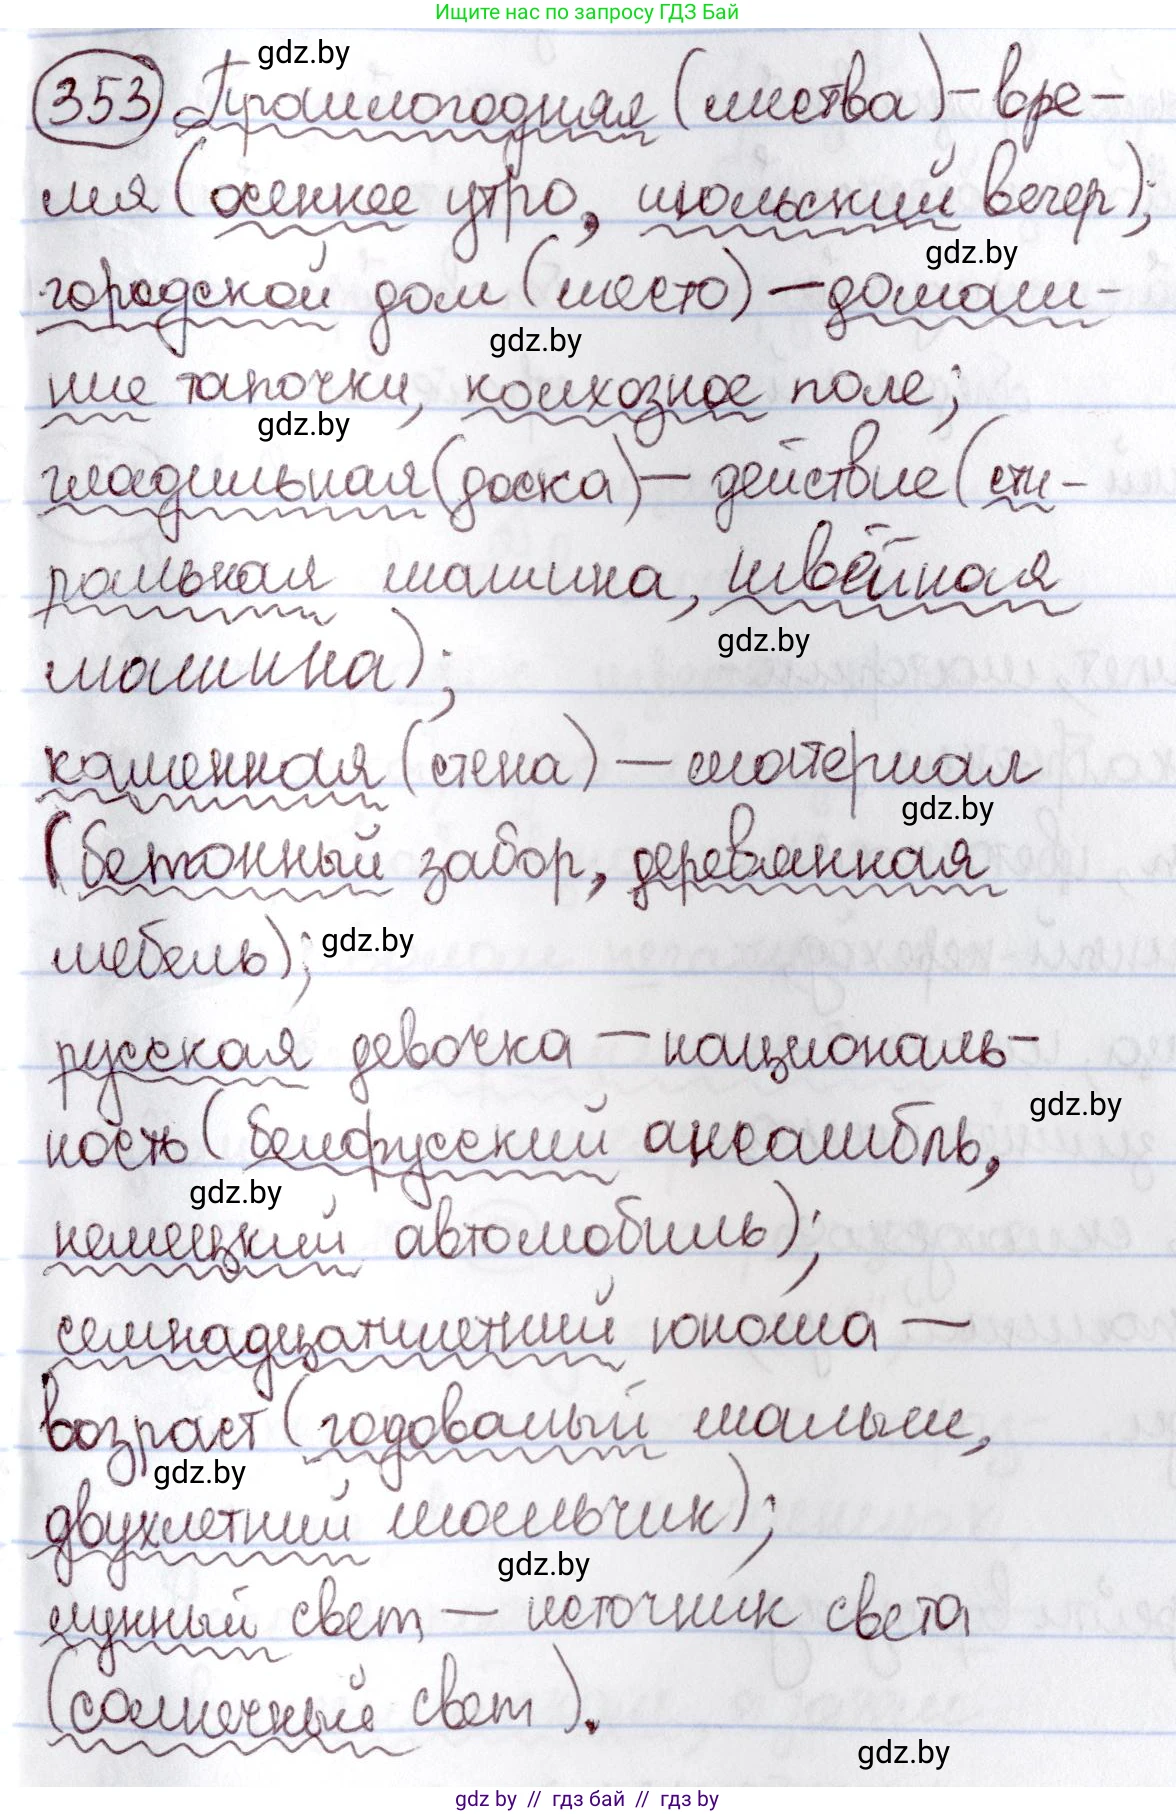 Ищите нас по запросу ГДЗ Бай
gdz.by
353 Прошлогодняя (листва) – вре-
мя (осеннее утро, июльский вечер);
gdz.by
городской дом (место) – домаш-
gdz.by
ние тапочки, колхозное поле;
gdz.by
гладильная (доска) – действие (сти-
ральная машина, швейная
gdz.by
машина);
каменная (стена) – материал
gdz.by
(бетонный забор, деревянная
мебель); gdz.by
русская девочка – националь-
gdz.by
ность (белорусский ансамбль,
gdz.by
немецкий автомобиль);
семнадцатилетний юноша –
возраст (годовалый малыш,
gdz.by
двухлетний мальчик);
gdz.by
лунный свет – источник света
(солнечный свет).
gdz.by
gdz.by // гдз бай // гдз by